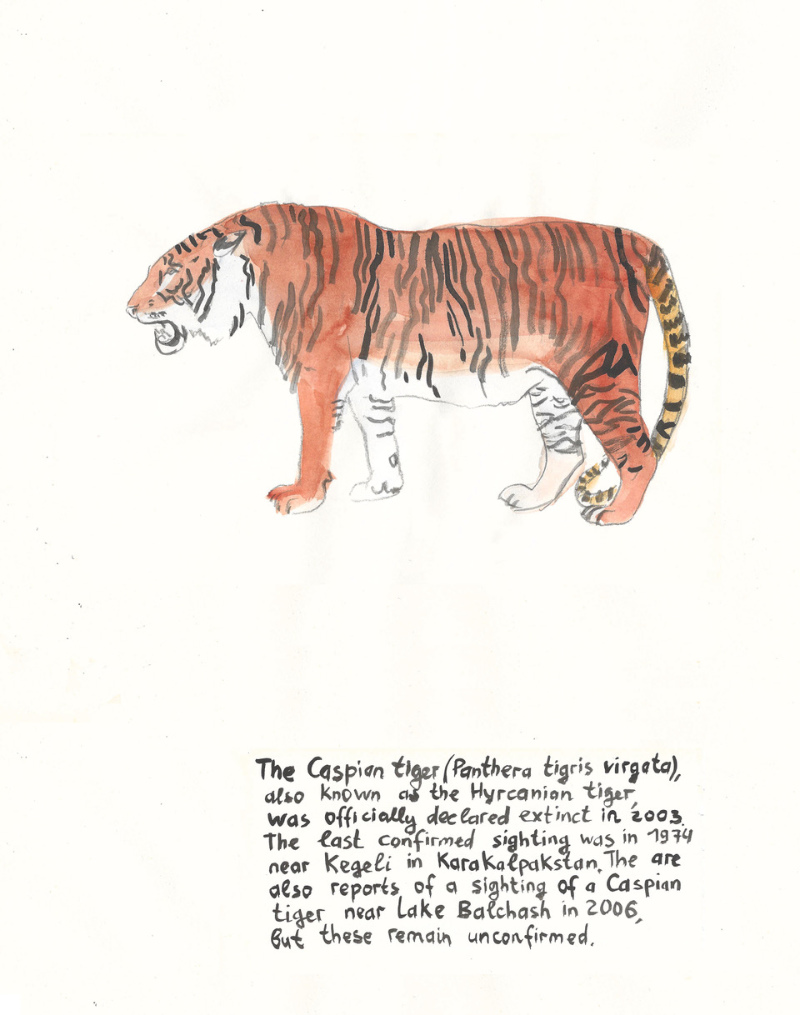 The Caspian tiger (Panthera tigris virgata),
also known as the Hyrcanian tiger,
was officially declared extinct in 2003.
The last confirmed sighting was in 1974
near Kegeli in Karakalpakstan. The are
also reports of a sighting of a Caspian
tiger near Lake Balchash in 2006,
but these remain unconfirmed.